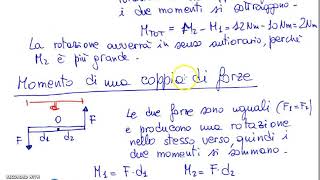 i due momenti si sottraggono.
M_TOT = M₂ - M₁ = 12Nm - 10Nm = 2Nm
La rotazione avverrà in senso antiorario, perché
M₂ è più grande.
Momento di una coppia di forze
d
F
O
d₁ d₂
F
Le due forze sono uguali (F₁=F₂)
e producono una rotazione
nello stesso verso, quindi i
due momenti si sommano.
M₁ = F·d₁ M₂ = F·d₂